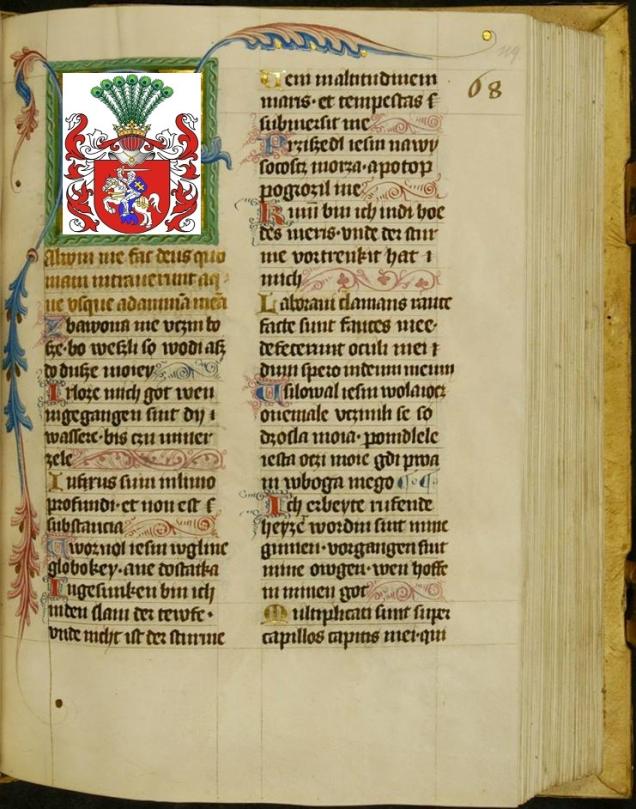 68
119
Alvum me fac deus quo
niam intrauerunt aq
ue vsque ad animā meā
Zbawona me vczin bo
sze · bo weszli so wodi asz
do dusze moiey
Irloze mich got wen
ingegangen sint dy i
wassere · bis czu miner
zele
Infixus sum in limo
profundi · et non est s
substancia
Uwoznol iesm wglinē
globokey · a ne dostatka
Ingesunken bin ich
in den slam der tewfe ·
vnde nicht ist der sturme
Veni in altitudinem
maris · et tempestas s
submersit me
Prziszedl iesm na wy
socoscz morza · a potop
pogrozil me
Kumē bin ich in di hoe
des meris · vnde der stur
me vortrenkit hat i
mich
Laboraui clamans rauce
facte sunt fauces mee ·
defecerunt oculi mei t
dum spero in deum meum
Usilowal iesm wolaiocz
oniemale vczinili se so
dzosla moia · pomdlele
iesta oczi moie gdi pwa
m w boga mego
Ich erbeyte rufende
heyze wordin sint mine
gumen · vorgangen sint
mine owgen · wen hoffe
in minen got
Multiplicati sunt super
capillos capitis mei · qui